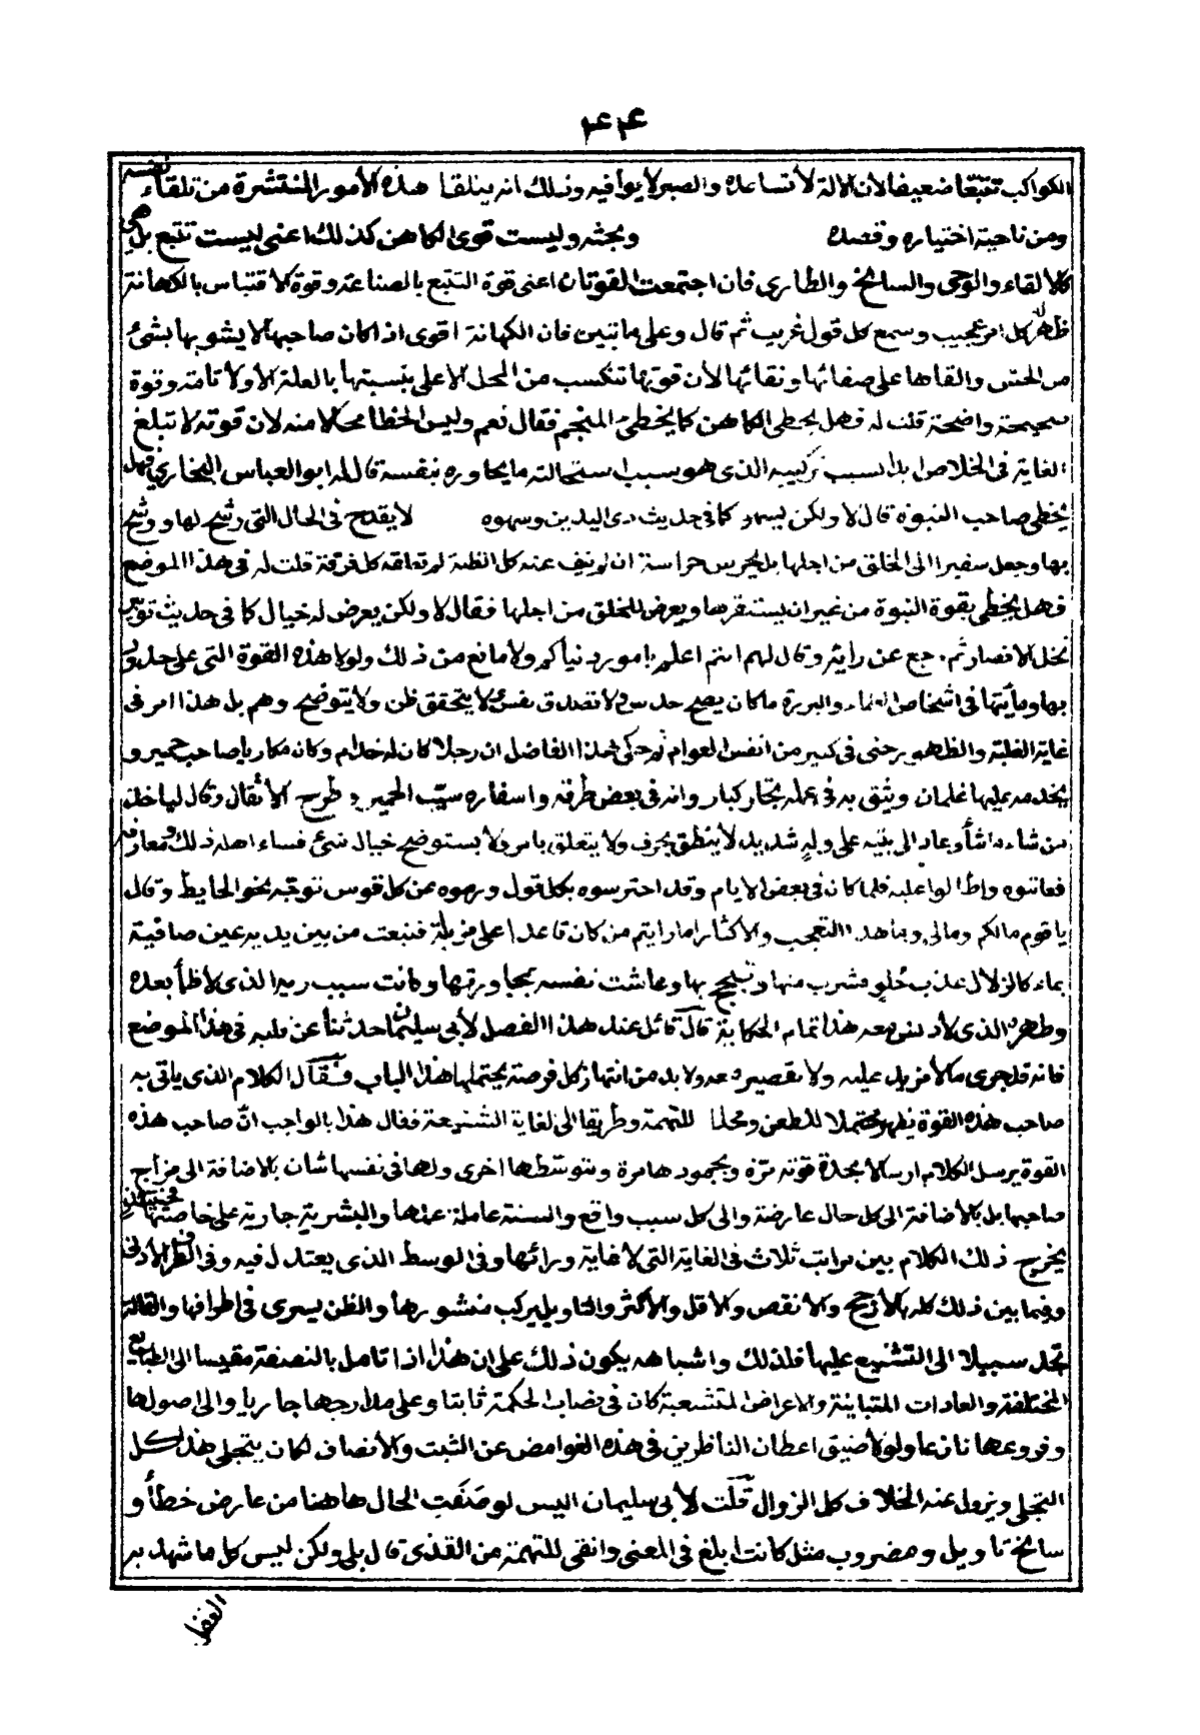 ٤٤
الكواكب تتبعا ضعيفا لان الالة لا تساعده والصبر لا يوافيه وذلك انه يتلقا هذه الأمور المنتشرة من تلقاء نفسه
ومن ناحية اختياره وقصده وبحثه وليست قوى الكاهن كذلك اعنى ليست تتبع بل هى
كالالقاء والوحى والسانح والطارى فان اجتمعت القوتان اعنى قوة التتبع بالصناعة وقوة الاقتباس بالكهانة
ظهر له كل امر عجيب وسمع كل قول غريب ثم قال وعلى ما تبين فان الكهانة اقوى اذا كان صاحبها لا يشوبها بشئ
من الحس والقاها على صفائها ونقائها لأن قوتها تنكسب من المحل الاعلى بنسبتها بالعلة الاولا تامة وقوة
صحيحة واضحة قلت له فهل يخطى الكاهن كما يخطئ المنجم فقال نعم وليس الخطا محالا منه لان قوته لا تبلغ
الغاية فى الخلاص بل السبب تركيبه الذى هو سبب استحالته ما يحاوره بنفسه قال له ابو العباس البخارى فهل
يخطى صاحب النبوة قال لا ولكن يسهو كما فى حديث ذى اليدين وسهوه لا يقدح فى الحال التى رشح لها ووشح
بها وجعل سفيرا الى الخلق من اجلها بل يحرس حراسة ان لم تنف عنه كل الظنة لم تعلقه كل فرقة قلت له فى هذا الموضع
فهل يخطى بقوة النبوة من غير ان يستقرها ويعرض للخلق من اجلها فقال لا ولكن يعرض له خيال كما فى حديث توبير
نخل الانصار ثم رجع عن رايه وقال لهم انتم اعلم بامور دنياكم ولا مانع من ذلك ولولا هذه القوة التى على حدو
بها ومأتها فى اشخاص العلماء والبررة ما كان يصح حدس ولا تصدق نفس ولا يتحقق ظن ولا يتوضح وهم بل هذا امر فى
غاية الغلبة والظهور حتى فى كبير من انفس العوام ثم حكى لهذا الفاضل ان رجلا كان له خدام وكان مكاريا صاحب حمير و
يخدمه عليها غلمان وثيق به فى عمله تجار كبار وانه فى بعض طرقه واسفاره سيّب الحمير وطرح الأثقال وقال لياخذ
من شاء ما شأ وعاد الى بيته على وله شديد لا ينطق بحرف ولا يتعلق بامر ولا يستوضح خيال شئ فساء اهله ذلك ومعارفه
فعاتبوه واطالوا عليه فلما كان فى بعض الايام وقد احترسوه بكل قول ورموه عن كل قوس توجه نحو الحايط وقال
يا قوم مالكم ومالى وما هذا التعجب والاكثار اما رايتم من كان قاعدا على مزبلة فنبعت من بين يديه عين صافية
بماء كالزلال عذب حُلوٍ فشرب منها وتبلج بها وعاشت نفسه بمجاورتها وكانت سبب ريه الذى لا ظمأ بعده
وطهره الذى لا دنس معه هذا تمام الحكاية قال قائل عند هذا الفصل لأبى سليمان حدثنا عن مليه فى هذا الموضع
فانه قد جرى ما لا مزيد عليه ولا تقصير معه ولا بد من انتهاز كل فرصة يحتملها هذا الباب فقال الكلام الذى ياتى به
صاحب هذه القوة يظهر محتملا للطعن ومحلا للتهمة وطريقا الى لغاية الشنيعة فقال هذا بالواجب انّ صاحب هذه
القوة يرسل الكلام ارسالا بحدة قوته مرّة وبجمودها مرة وبتوسّطها اخرى ولها فى نفسها شان بالاضافة الى مزاج
صاحبها بل بالاضافة الى كل حال عارضة والى كل سبب واقع والسنة عاملة عنها والبشرية جارية على خاصتها فحينئذ
يخرج ذلك الكلام بين مراتب ثلاث فى الغاية التى لا غاية ورائها وفى الوسط الذى يعتدل فيه وفى الطرف الأدنى
وفيما بين ذلك كله بالأرجح والانقص والأقل والأكثر والتاويل يركب منشورها والظن يسرى فى اطرافها والقالة
تجد سبيلا الى التشنيع عليها فلذلك واشباهه يكون ذلك على ان هذا اذا تامل بالنصفة مقيسا الى الطبايع
المختلفة والعادات المتباينة والاعراض المتشعبة كان فى نصاب الحكمة ثابتا وعلى مدارجها جاريا والى اصولها
وفروعها نازعا ولولا ضيق اعطان الناظرين فى هذه الغوامض عن الثبت والأنصاف لكان يتجلى هذا كل
التجلى ويزول عنه الخلاف كل الزوال قلت لأبى سليمان اليس لو صَفَتِ الحال هاهنا من عارض خطأ و
سانح تاويل ومضروب مثل كانت ابلغ فى المعنى وانفى للتهمة من القذى قال بلى ولكن ليس كل ما شهد به